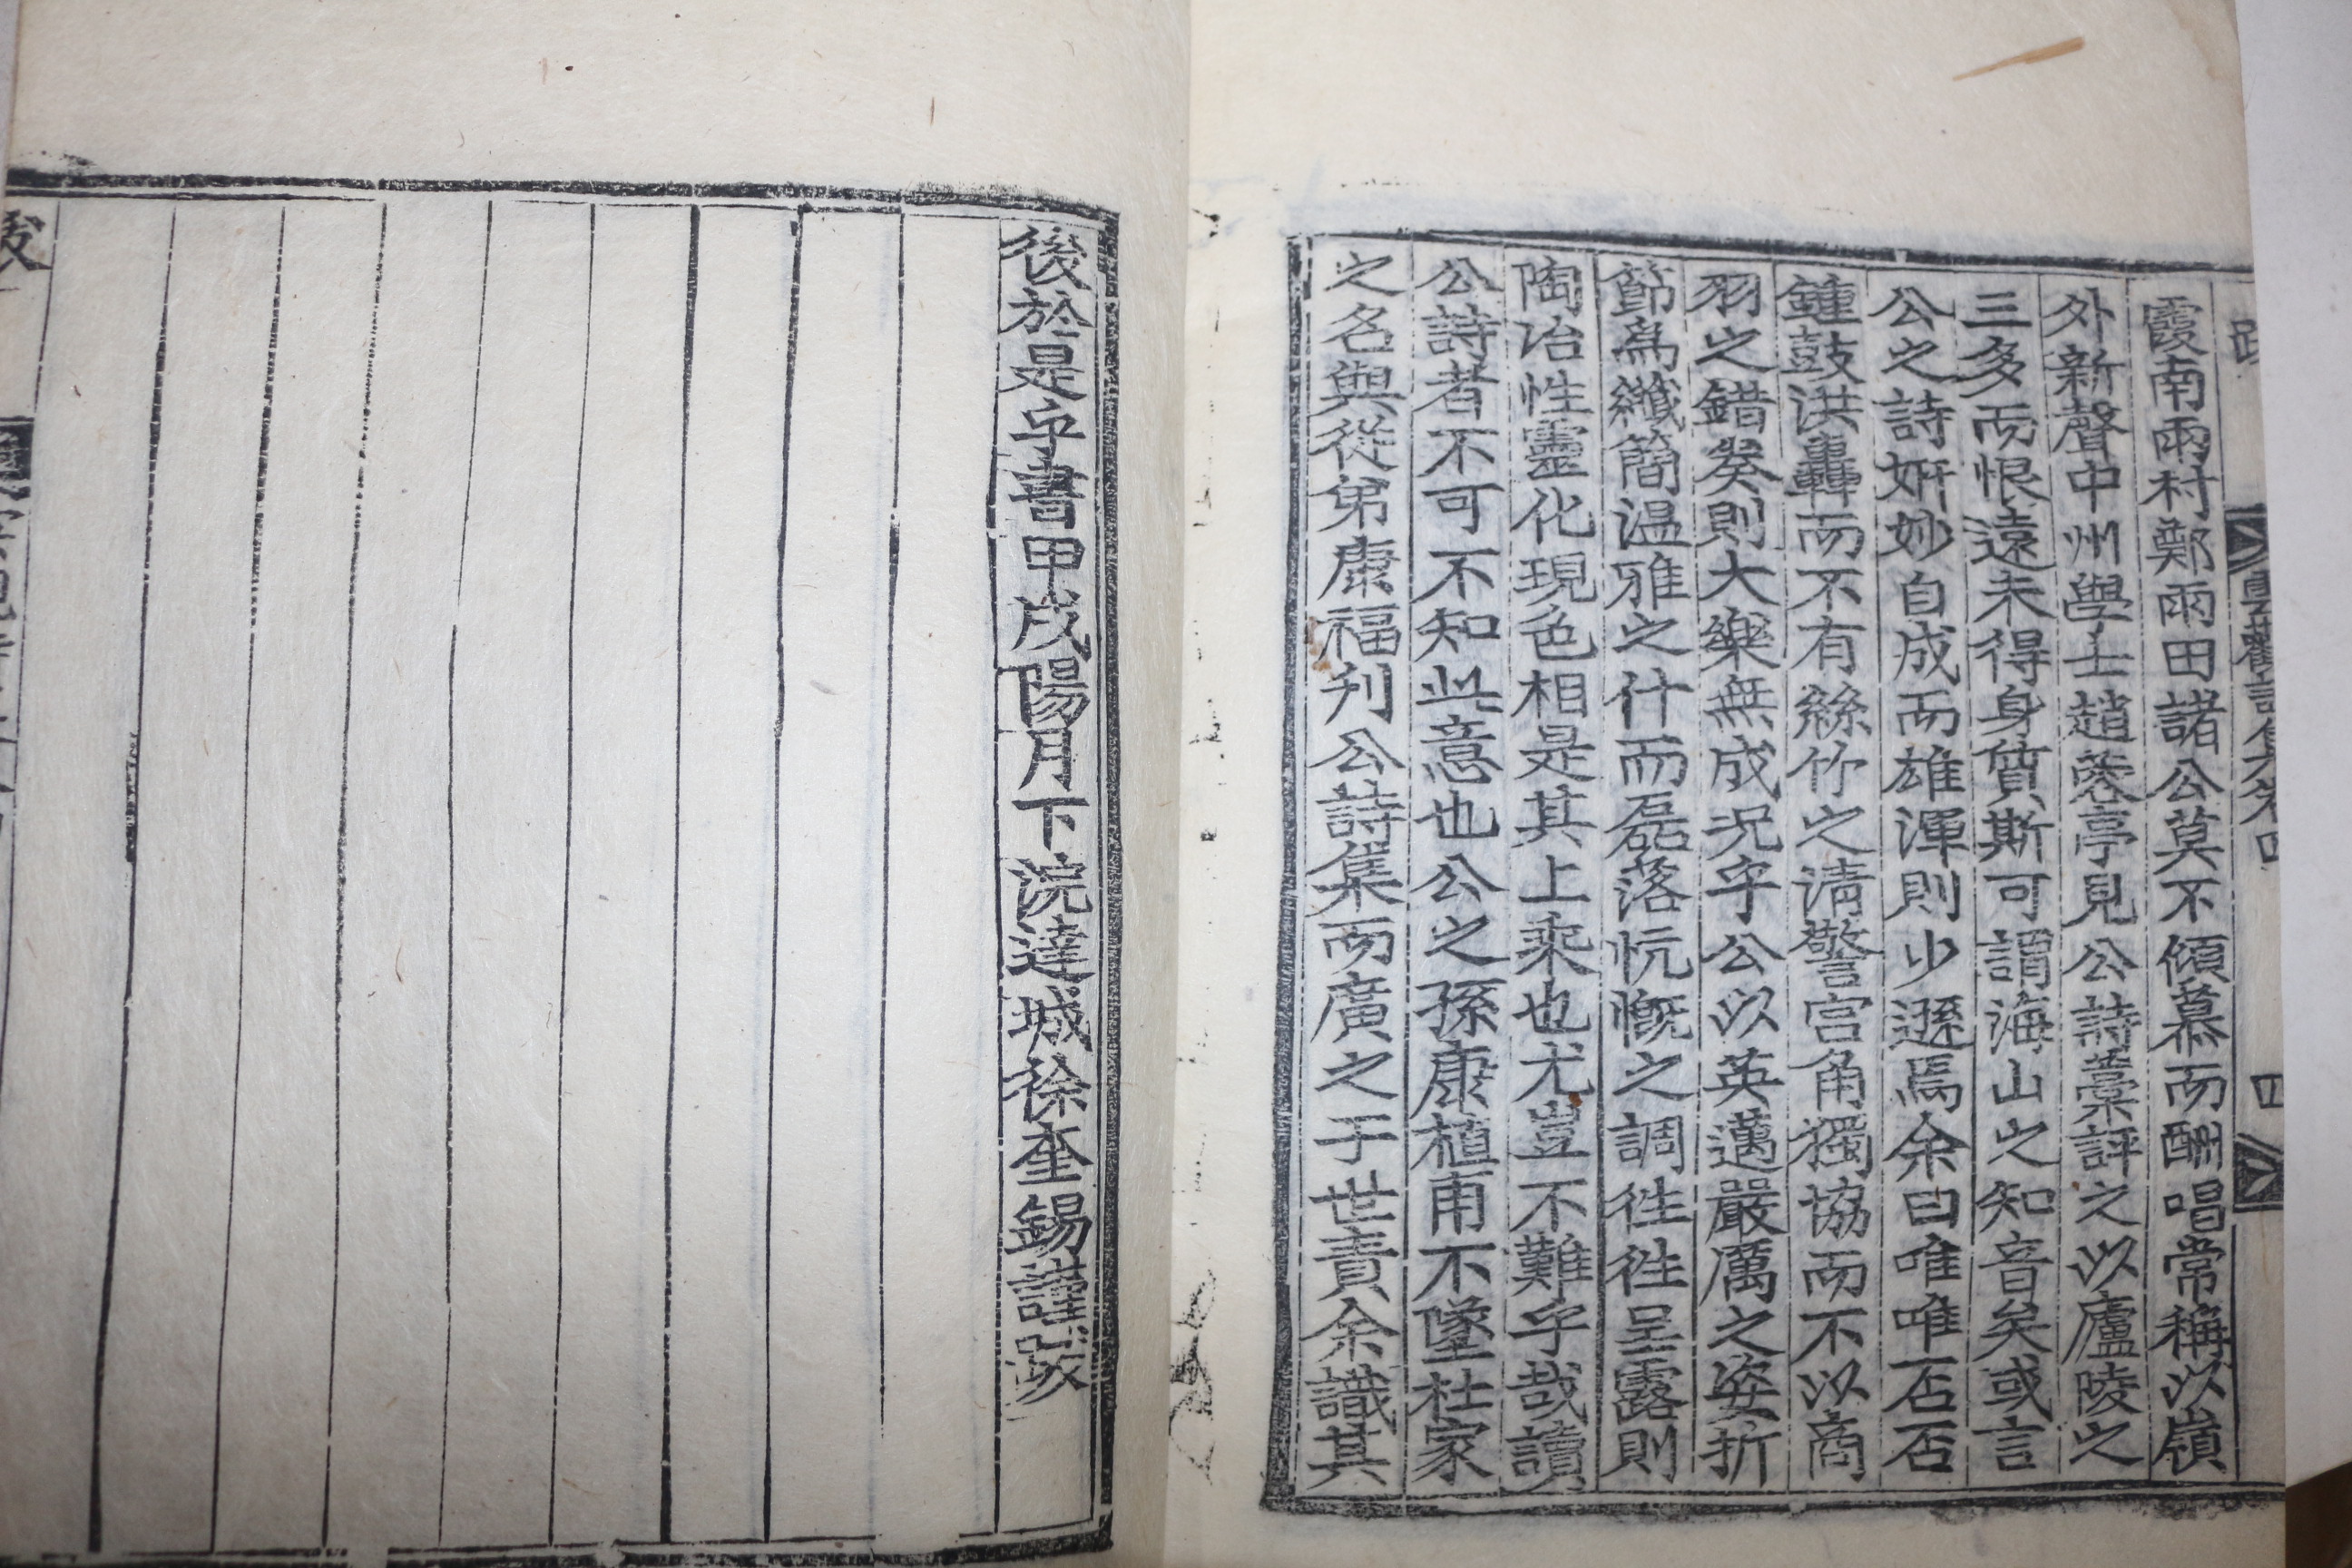 霞南雨村鄭雨田諸公莫不傾慕而酬唱常稱以嶺
外新聲中州學士趙蓉亭見公詩藁評之以廬陵之
三多而恨遠未得身質斯可謂海山之知音矣或言
公之詩姸妙自成而雄渾則少遜焉余曰唯唯否否
鍾鼓洪轟而不有絲竹之淸警宮角獨協而不以商
羽之錯癸則大樂無成况乎公以英邁嚴厲之姿折
節爲纖簡温雅之什而磊落忼慨之調徃徃呈露則
陶冶性靈化現色相是其上乘也尤豈不難乎哉讀
公詩者不可不知此意也公之孫康植甫不墜杜家
之名與從弟康福刋公詩集而廣之于世責余識其
後於是乎書甲戌陽月下浣達城徐奎錫謹跋